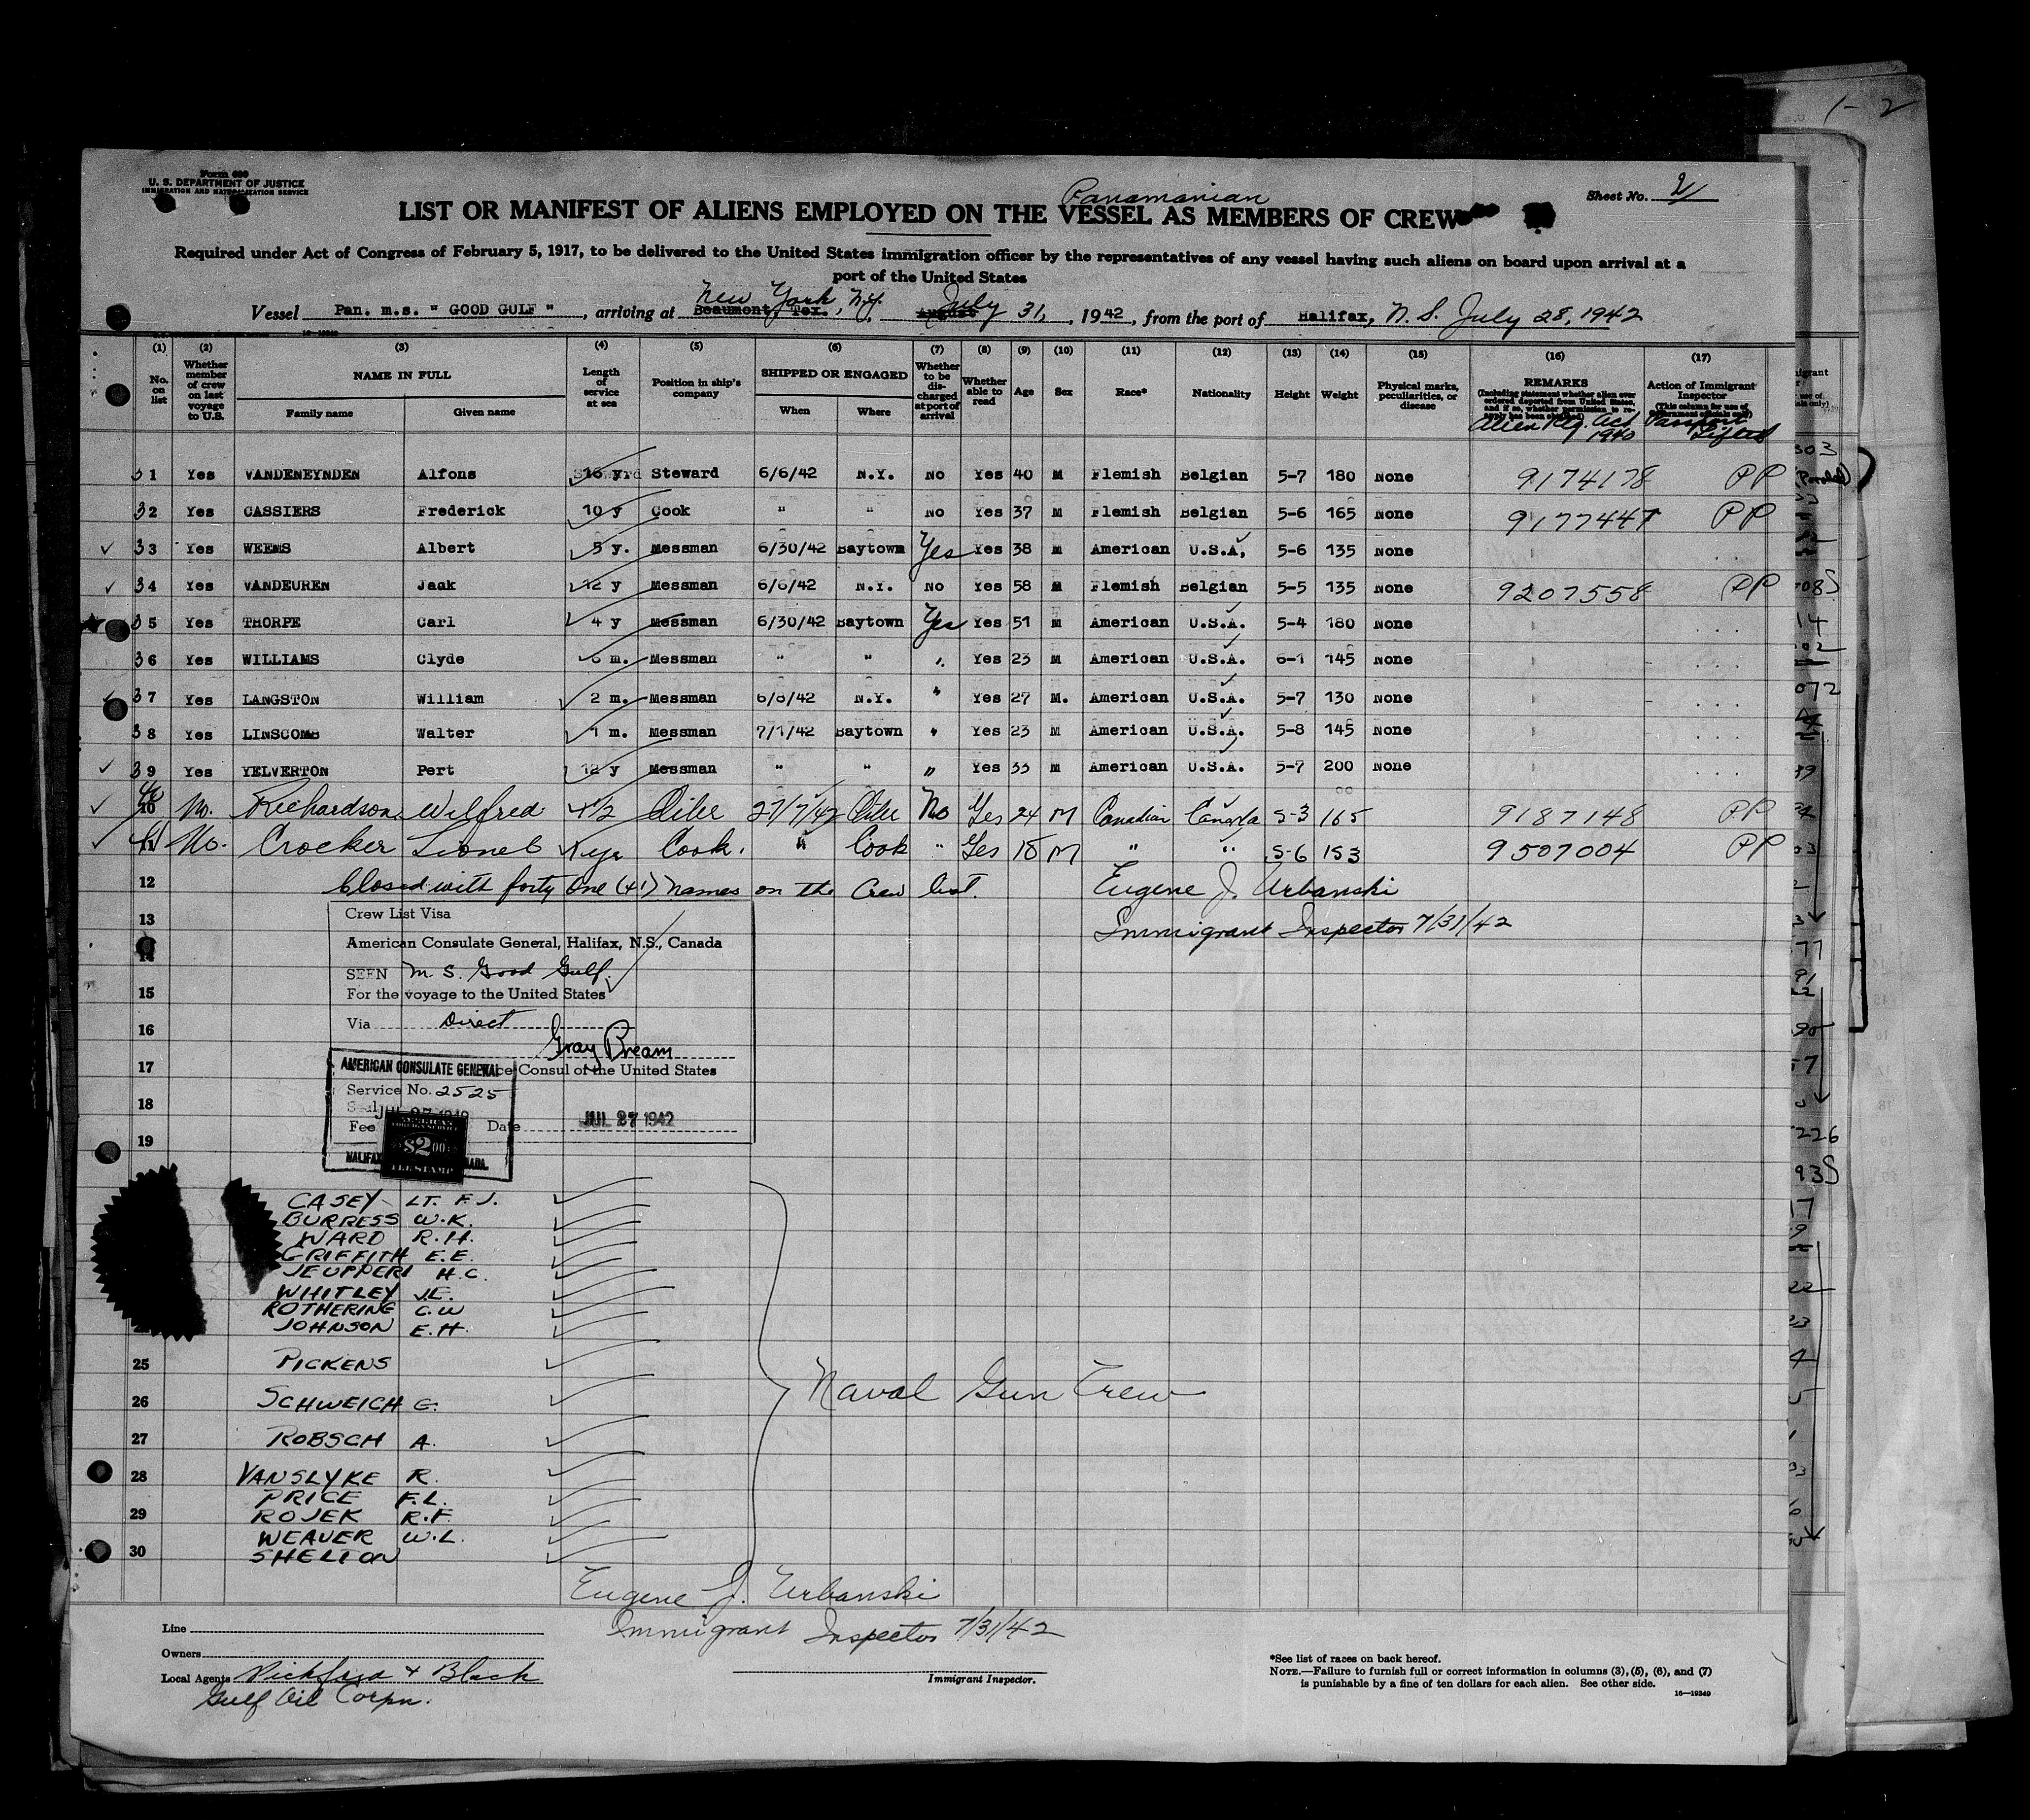 1- 2
Form 680
U. S. DEPARTMENT OF JUSTICE
IMMIGRATION AND NATURALIZATION SERVICE
Sheet No. 2
Panamanian
LIST OR MANIFEST OF ALIENS EMPLOYED ON THE VESSEL AS MEMBERS OF CREW
Required under Act of Congress of February 5, 1917, to be delivered to the United States immigration officer by the representatives of any vessel having such aliens on board upon arrival at a
port of the United States
New York, N.Y. July
Vessel Pan. m.s. "GOOD GULF", arriving at Beaumont, Tex., August 31, 1942, from the port of Halifax, N.S. July 28, 1942
(1) (2) (3) (4) (5) (6) (7) (8) (9) (10) (11) (12) (13) (14) (15) (16) (17)
No. on list
Whether member of crew on last voyage to U.S.
NAME IN FULL
Family name
Given name
Length of service at sea
Position in ship's company
SHIPPED OR ENGAGED
When
Where
Whether to be discharged at port of arrival
Whether able to read
Age
Sex
Race*
Nationality
Height
Weight
Physical marks, peculiarities, or disease
REMARKS
(Including statement whether alien ever ordered deported from United States, and if so, whether permission to reapply has been obtained)
Alien Reg. Act 1940
Action of Immigrant Inspector
(This column for use of Government officials only)
Passport Lifted
31 Yes VANDENEYNDEN Alfons 16 y Steward 6/6/42 N.Y. No Yes 40 M Flemish Belgian 5-7 180 None 9174178 PP
32 Yes CASSIERS Frederick 10 y Cook " " No Yes 37 M Flemish Belgian 5-6 165 None 9177447 PP
33 Yes WEEMS Albert 5 y. Messman 6/30/42 Baytown Yes Yes 38 M American U.S.A. 5-6 135 None
34 Yes VANDEUREN Jaak 12 y Messman 6/6/42 N.Y. No Yes 58 M Flemish Belgian 5-5 135 None 9207558 PP
35 Yes THORPE Carl 4 y Messman 6/30/42 Baytown Yes Yes 51 M American U.S.A. 5-4 180 None
36 Yes WILLIAMS Clyde 6 m. Messman " " " Yes 23 M American U.S.A. 6-1 145 None
37 Yes LANGSTON William 2 m. Messman 6/8/42 N.Y. " Yes 27 M. American U.S.A. 5-7 130 None
38 Yes LINSCOMB Walter 1 m. Messman 7/1/42 Baytown " Yes 23 M American U.S.A. 5-8 145 None
39 Yes YELVERTON Pert 12 y Messman " " " Yes 33 M American U.S.A. 5-7 200 None
40 No. Richardson Wilfred 1/2 Oiler 27/7/42 Oiler No Yes 24 M Canadian Canada 5-3 165 9187148 PP
41 No. Crocker Lionel Cook. " Cook " Yes 18 M " " 5-6 153 9507004 PP
12 Closed with forty one (41) names on the Crew list. Eugene J. Urbanski
13 Immigrant Inspector 7/31/42
Crew List Visa
American Consulate General, Halifax, N.S., Canada
14
SEEN M. S. Good Gulf
15 For the voyage to the United States
16 Via Direct
Gray Bream
17 Vice Consul of the United States
AMERICAN CONSULATE GENERAL
Service No. 2525
18 Seal
JUL 27 1942
Fee Date JUL 27 1942
$2 00
19
HALIFAX
CASEY LT. F.J.
BURRESS W.K.
WARD R.H.
GRIFFITH E.E.
JEUPPERT H.C.
WHITLEY J.E.
ROTHERING C.W
JOHNSON E.H.
25 PICKENS
26 SCHWEICH G. Naval Gun Crew
27 ROBSCH A.
28 VANSLYKE R.
PRICE F.L.
29 ROJEK R.F.
WEAVER W.L.
30 SHELTON
Eugene J. Urbanski
Immigrant Inspector 7/31/42
Line
Owners
Local Agents Pickford & Black
Gulf Oil Corpn.
Immigrant Inspector.
*See list of races on back hereof.
NOTE.—Failure to furnish full or correct information in columns (3), (5), (6), and (7)
is punishable by a fine of ten dollars for each alien. See other side.
16—19349